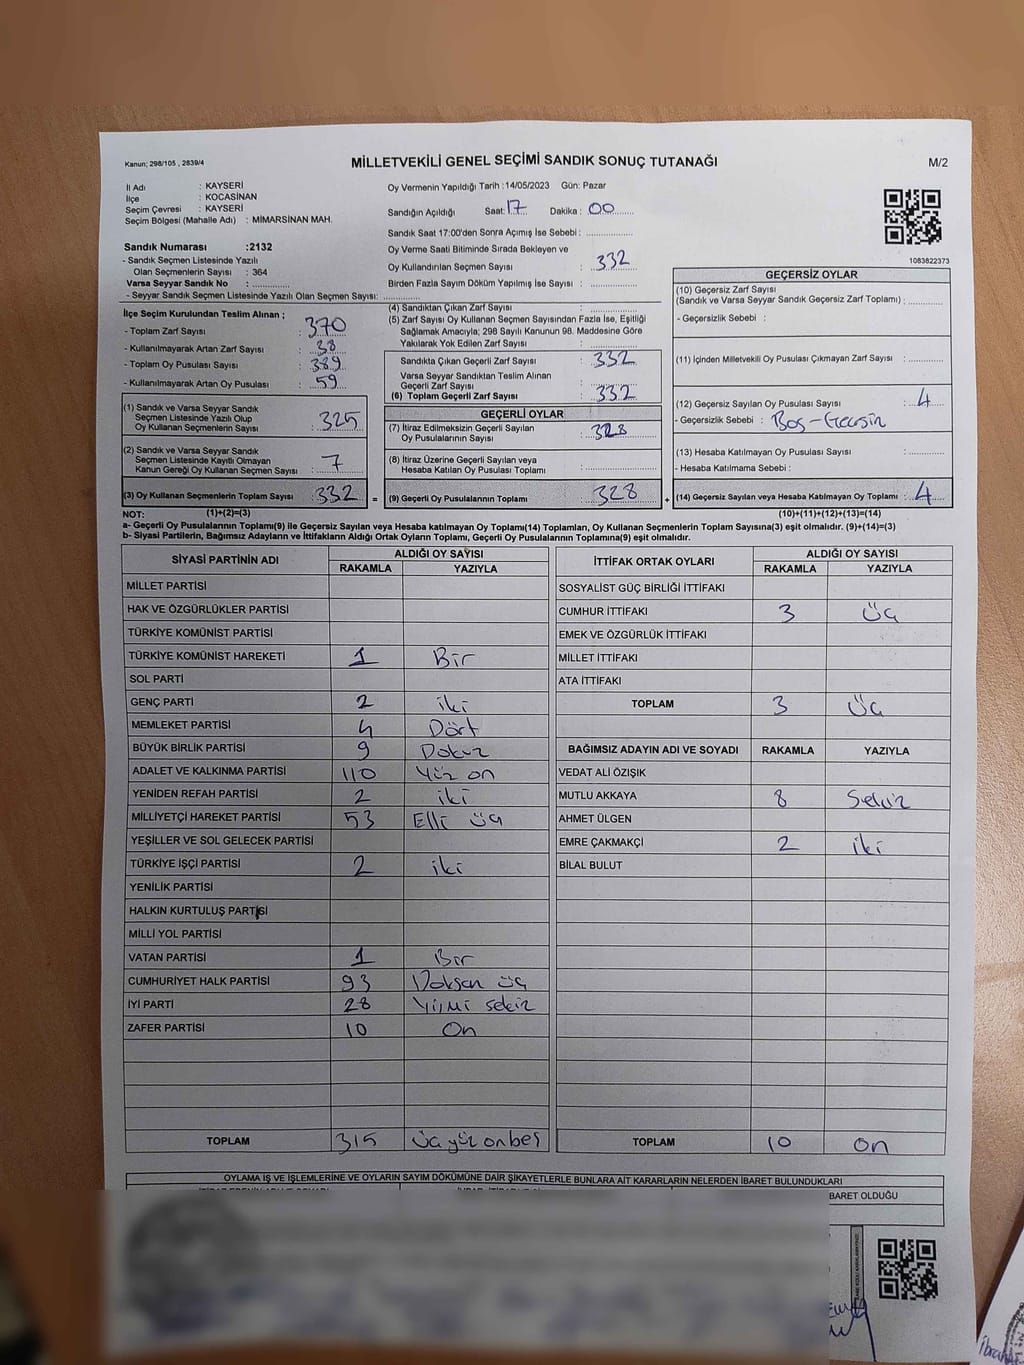 Kanun; 298/105 , 2839/4
MİLLETVEKİLİ GENEL SEÇİMİ SANDIK SONUÇ TUTANAĞI
M/2
İl Adı : KAYSERİ
İlçe : KOCASİNAN
Seçim Çevresi : KAYSERİ
Seçim Bölgesi (Mahalle Adı) : MİMARSİNAN MAH.
Oy Vermenin Yapıldığı Tarih : 14/05/2023 Gün: Pazar
Sandığın Açıldığı Saat: 17 Dakika : 00
Sandık Saat 17:00'den Sonra Açımış İse Sebebi :
Sandık Numarası :2132
- Sandık Seçmen Listesinde Yazılı
Olan Seçmenlerin Sayısı : 364
Varsa Seyyar Sandık No :
- Seyyar Sandık Seçmen Listesinde Yazılı Olan Seçmen Sayısı:
Oy Verme Saati Bitiminde Sırada Bekleyen ve
Oy Kullandırılan Seçmen Sayısı : 332
Birden Fazla Sayım Döküm Yapılmış İse Sayısı :
1083822373
İlçe Seçim Kurulundan Teslim Alınan ;
- Toplam Zarf Sayısı : 370
- Kullanılmayarak Artan Zarf Sayısı : 38
- Toplam Oy Pusulası Sayısı : 389
- Kullanılmayarak Artan Oy Pusulası : 59
(1) Sandık ve Varsa Seyyar Sandık
Seçmen Listesinde Yazılı Olup
Oy Kullanan Seçmenlerin Sayısı : 325
(2) Sandık ve Varsa Seyyar Sandık
Seçmen Listesinde Kayıtlı Olmayan
Kanun Gereği Oy Kullanan Seçmen Sayısı : 7
(3) Oy Kullanan Seçmenlerin Toplam Sayısı : 332 =
(4) Sandıktan Çıkan Zarf Sayısı :
(5) Zarf Sayısı Oy Kullanan Seçmen Sayısından Fazla İse, Eşitliği
Sağlamak Amacıyla; 298 Sayılı Kanunun 98. Maddesine Göre
Yakılarak Yok Edilen Zarf Sayısı :
Sandıkta Çıkan Geçerli Zarf Sayısı : 332
Varsa Seyyar Sandıktan Teslim Alınan
Geçerli Zarf Sayısı :
(6) Toplam Geçerli Zarf Sayısı : 332
GEÇERLİ OYLAR
(7) İtiraz Edilmeksizin Geçerli Sayılan
Oy Pusulalarının Sayısı : 328
(8) İtiraz Üzerine Geçerli Sayılan veya
Hesaba Katılan Oy Pusulası Toplamı :
(9) Geçerli Oy Pusulalarının Toplamı : 328 +
GEÇERSİZ OYLAR
(10) Geçersiz Zarf Sayısı
(Sandık ve Varsa Seyyar Sandık Geçersiz Zarf Toplamı) :
- Geçersizlik Sebebi :
(11) İçinden Milletvekili Oy Pusulası Çıkmayan Zarf Sayısı :
(12) Geçersiz Sayılan Oy Pusulası Sayısı : 4
- Geçersizlik Sebebi : Boş-
(13) Hesaba Katılmayan Oy Pusulası Sayısı :
- Hesaba Katılmama Sebebi :
(14) Geçersiz Sayılan veya Hesaba Katılmayan Oy Toplamı : 4
NOT: (1)+(2)=(3) (10)+(11)+(12)+(13)=(14)
a- Geçerli Oy Pusulalarının Toplamı(9) ile Geçersiz Sayılan veya Hesaba katılmayan Oy Toplamı(14) Toplamları, Oy Kullanan Seçmenlerin Toplam Sayısına(3) eşit olmalıdır. (9)+(14)=(3)
b- Siyasi Partilerin, Bağımsız Adayların ve İttifakların Aldığı Ortak Oyların Toplamı, Geçerli Oy Pusulalarının Toplamına(9) eşit olmalıdır.
SİYASİ PARTİNİN ADI ALDIĞI OY SAYISI
RAKAMLA YAZIYLA
MİLLET PARTİSİ
HAK VE ÖZGÜRLÜKLER PARTİSİ
TÜRKİYE KOMÜNİST PARTİSİ
TÜRKİYE KOMÜNİST HAREKETİ 1 Bir
SOL PARTİ
GENÇ PARTİ 2 iki
MEMLEKET PARTİSİ 4 Dört
BÜYÜK BİRLİK PARTİSİ 9 Dokuz
ADALET VE KALKINMA PARTİSİ 110 Yüz on
YENİDEN REFAH PARTİSİ 2 iki
MİLLİYETÇİ HAREKET PARTİSİ 53 Elli üç
YEŞİLLER VE SOL GELECEK PARTİSİ
TÜRKİYE İŞÇİ PARTİSİ 2 iki
YENİLİK PARTİSİ
HALKIN KURTULUŞ PARTİSİ
MİLLİ YOL PARTİSİ
VATAN PARTİSİ 1 Bir
CUMHURİYET HALK PARTİSİ 93 Doksan üç
İYİ PARTİ 28 Yirmi sekiz
ZAFER PARTİSİ 10 On
TOPLAM 315 Üç yüz onbeş
İTTİFAK ORTAK OYLARI ALDIĞI OY SAYISI
RAKAMLA YAZIYLA
SOSYALİST GÜÇ BİRLİĞİ İTTİFAKI
CUMHUR İTTİFAKI 3 Üç
EMEK VE ÖZGÜRLÜK İTTİFAKI
MİLLET İTTİFAKI
ATA İTTİFAKI
TOPLAM 3 Üç
BAĞIMSIZ ADAYIN ADI VE SOYADI RAKAMLA YAZIYLA
VEDAT ALİ ÖZIŞIK
MUTLU AKKAYA 8 Sekiz
AHMET ÜLGEN
EMRE ÇAKMAKÇİ 2 iki
BİLAL BULUT
TOPLAM 10 On
OYLAMA İŞ VE İŞLEMLERİNE VE OYLARIN SAYIM DÖKÜMÜNE DAİR ŞİKAYETLERLE BUNLARA AİT KARARLARIN NELERDEN İBARET BULUNDUKLARI
BARET OLDUĞU